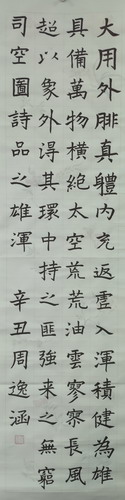 大用外腓真體內充返虛入渾積健為雄
具備萬物橫絕太空荒荒油雲寥寥長風
超以象外得其環中持之匪強來之無窮
司空圖詩品之雄渾 辛丑周逸涵